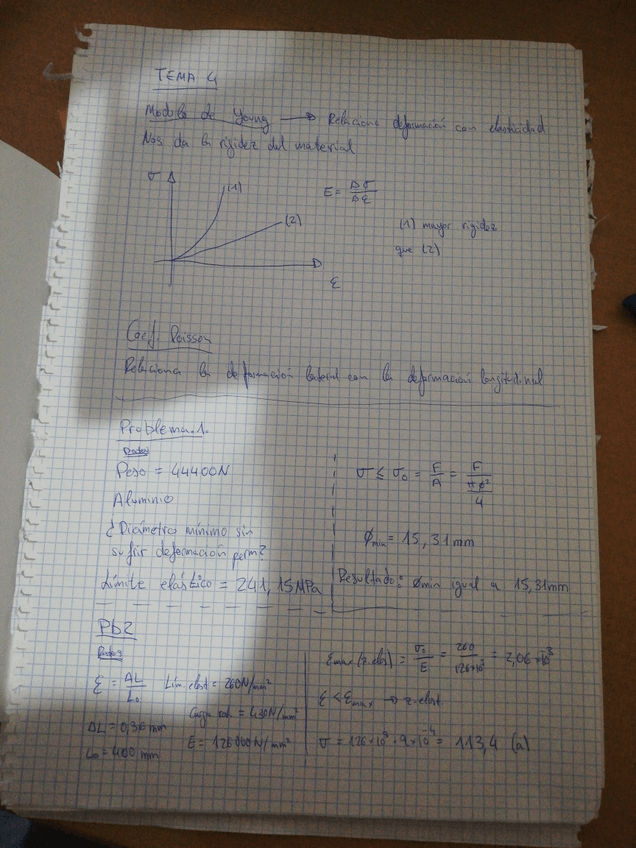 TEMA 4
Modulo de Young → Relaciona deformación con elasticidad
Nos da la rigidez del material
σ
(1)
(2)
ε
E = Δσ/Δε
(1) mayor rigidez
que (2)
Coef. Poisson
Relaciona la deformación lateral con la deformación longitudinal
Problema.1.
Datos
Peso = 44400N
Aluminio
¿Diámetro mínimo sin
sufrir deformación perm?
Límite elástico = 241,15MPa
σ ≤ σ₀ = F/A = F/(πϕ²/4)
ϕmin = 15,31mm
Resultado: ϕmin igual a 15,31mm
Pb2
Datos
ε = ΔL/L₀ Lím. elast = 260N/mm²
ΔL = 0,36 mm
L₀ = 400 mm
Carga rot. = 430N/mm²
E = 126000N/mm²
εmax(z.elas) = σ₀/E = 260/126×10³ = 2,06×10⁻³
ε < εmax → z-elast
σ = 126×10³·9×10⁻⁴ = 113,4 (a)